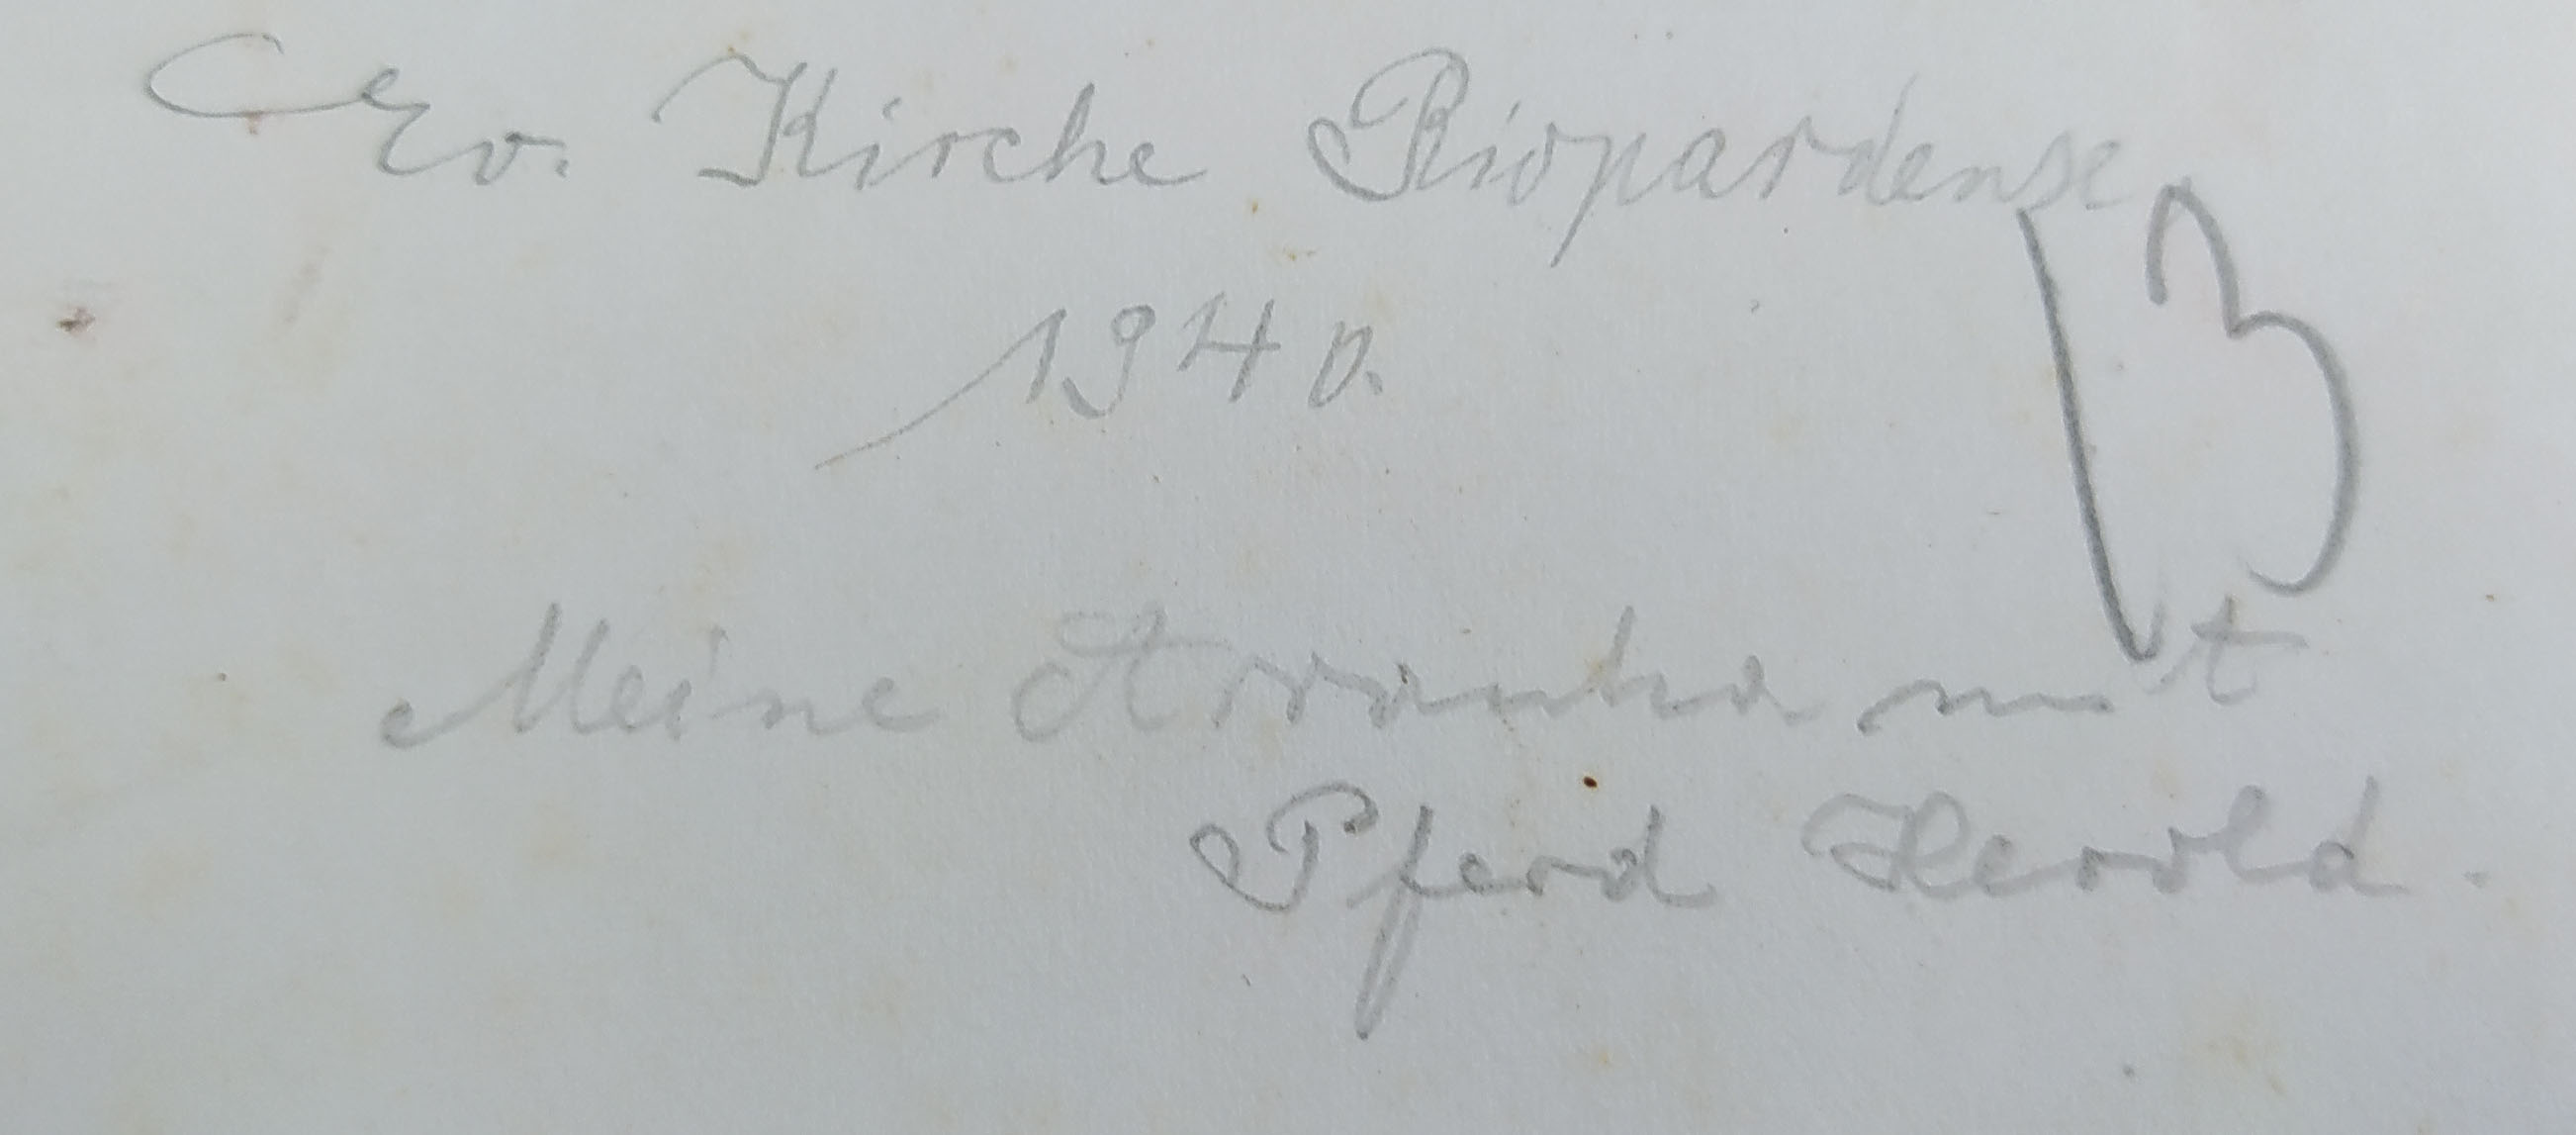 Ev. Kirche Riopardense
1940.
13
Meine Arranha mit
Pferd Herold.